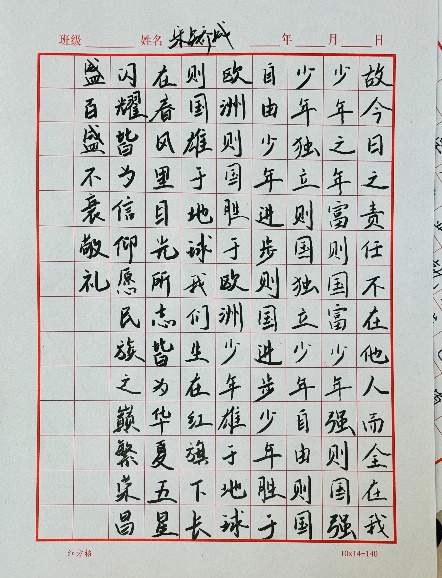 班级 姓名 年 月 日
故今日之责任不在他人而全在我
少年之年富则国富少年强则国强
少年独立则国独立少年自由则国
自由少年进步则国进步少年胜于
欧洲则国胜于欧洲少年雄于地球
则国雄于地球我们生在红旗下长
在春风里目光所志皆为华夏五星
闪耀皆为信仰愿民族之巅繁荣昌
盛百盛不衰敬礼
红方格 10x14=140